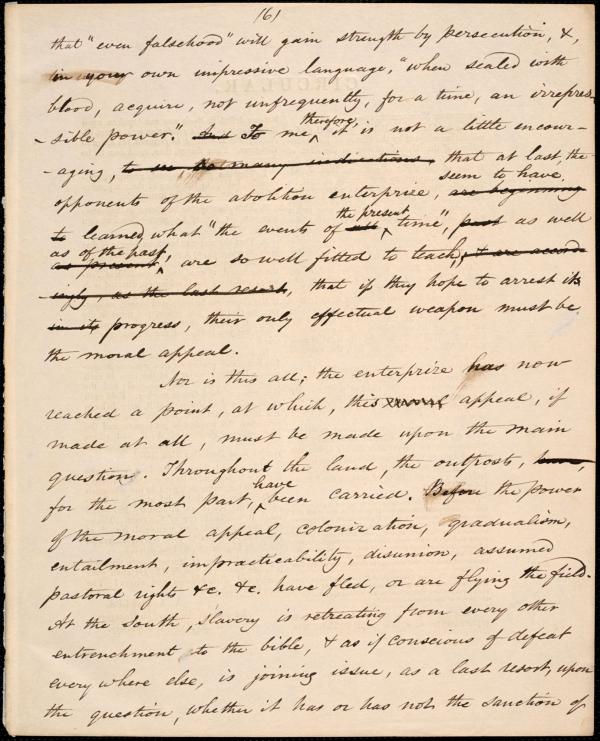 (6)
that "even falsehood" will gain strength by persecution, &,
in your own impressive language, "when sealed with
blood, acquire, not unfrequently, for a time, an irrepres-
-sible power." And To me, therefore, it is not a little encour-
-aging, to see, by many indications, that at last, the
opponents of the abolition enterprise, are beginning seem to have,
to learned, what "the events of all the present time", past as well
as present as of the past, are so well fitted to teach, & are accord
ingly, as the last resort, that if they hope to arrest its
in its progress, their only effectual weapon must be
the moral appeal.
Nor is this all; the enterprize has now
reached a point, at which, this moral appeal, if
made at all, must be made upon the main
question. Throughout the land, the outposts, have,
for the most part, have been carried. Before the power
of the moral appeal, colonization, gradualism,
entailment, impracticability, disunion, assumed
pastoral rights &c. &c. have fled, or are flying the field.
At the South, slavery is retreating from every other
entrenchment to the bible, & as if conscious of defeat
every where else, is joining issue, as a last resort, upon
the question, whether it has or has not the sanction of